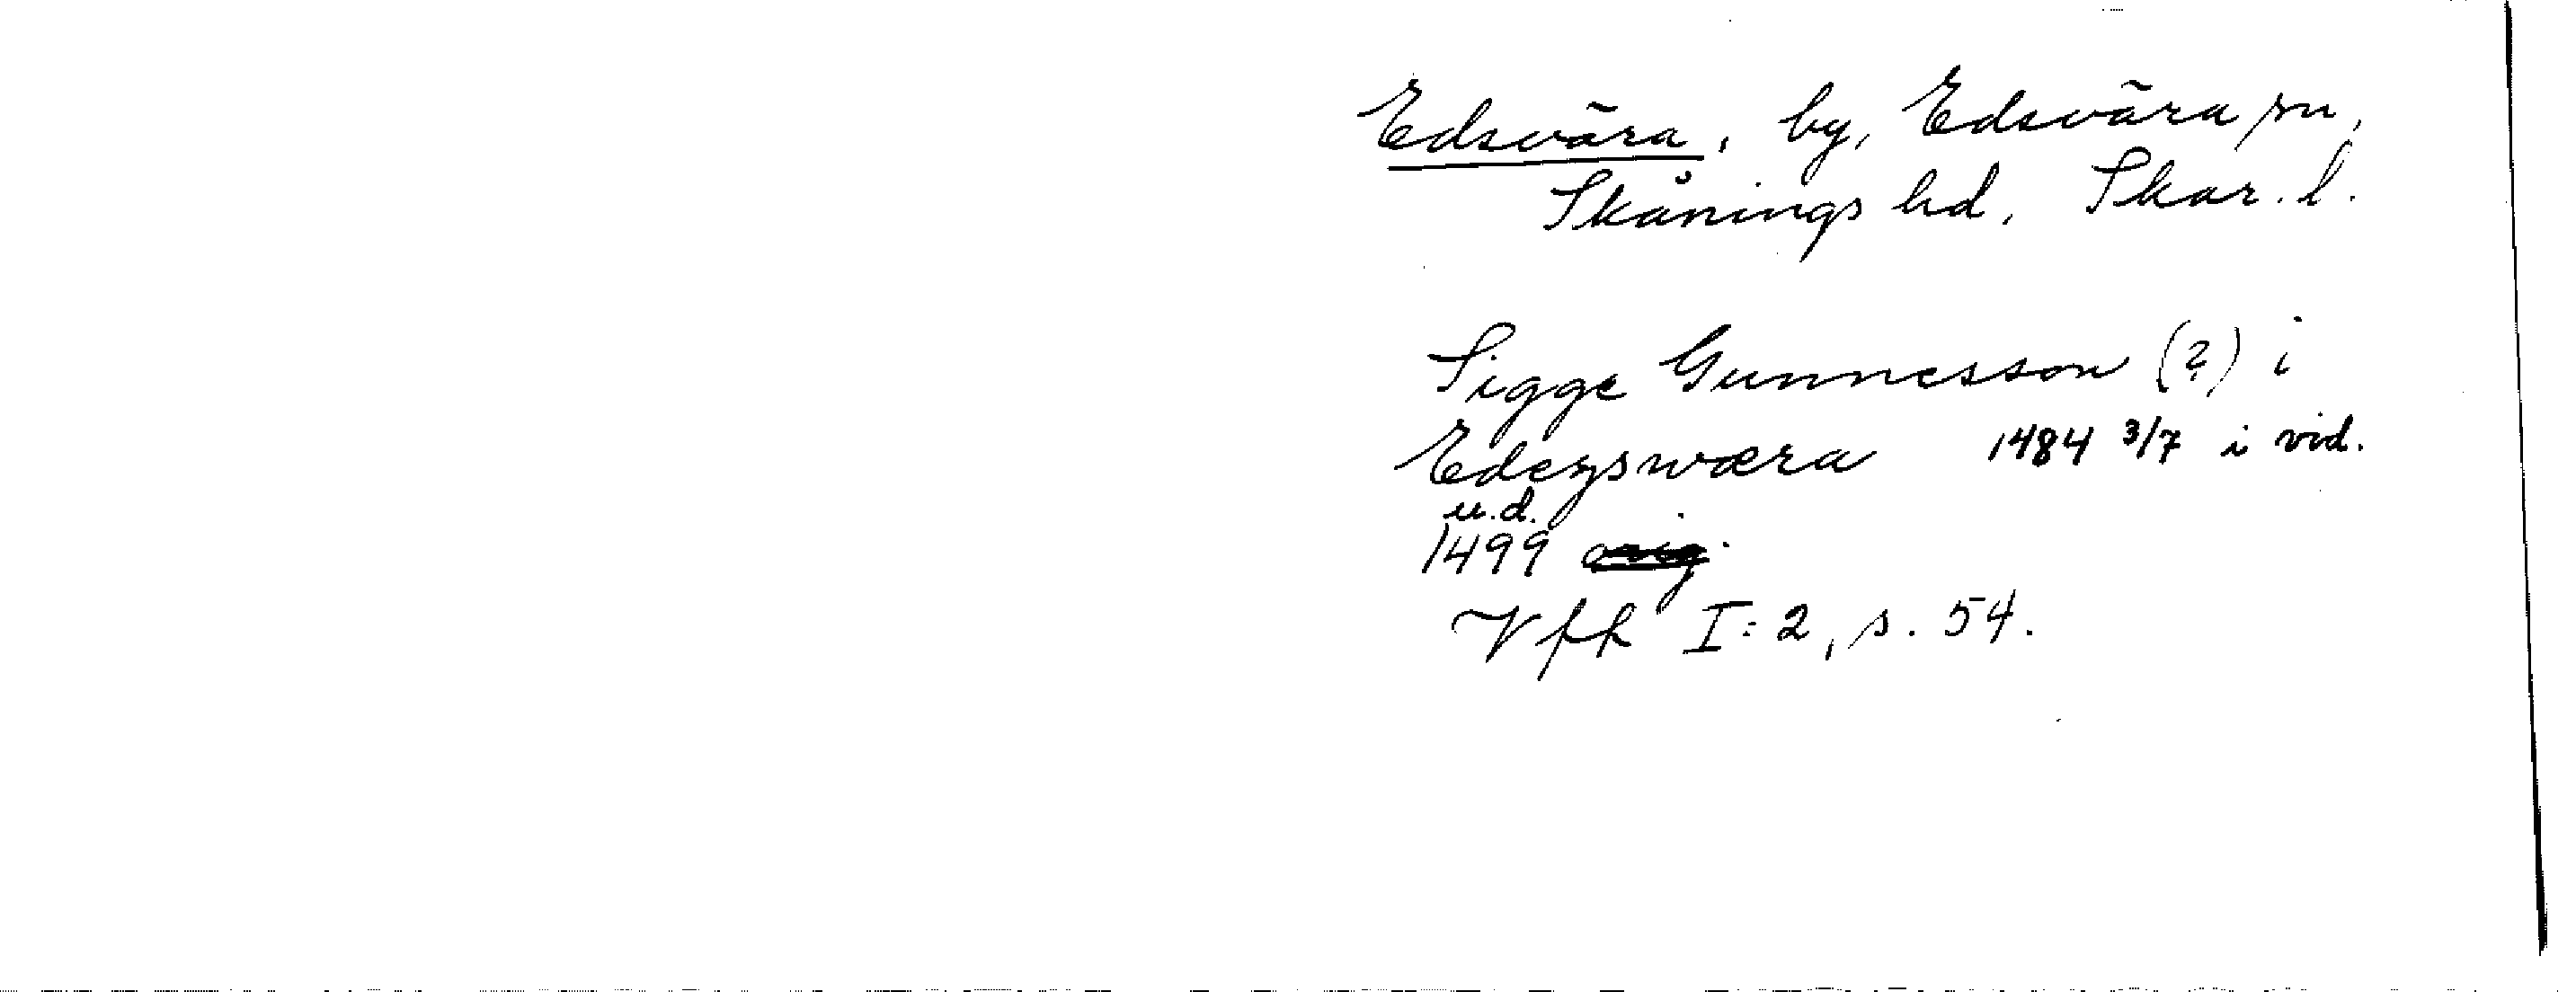 Edsvära, by, Edsvära sn,
Skånings hd, Skar. l.
Sigge Gunnesson (?) i
Edezswæra 1484 3/7 i vid.
u.d.
1499 orig.
Vff I:2, s. 54.